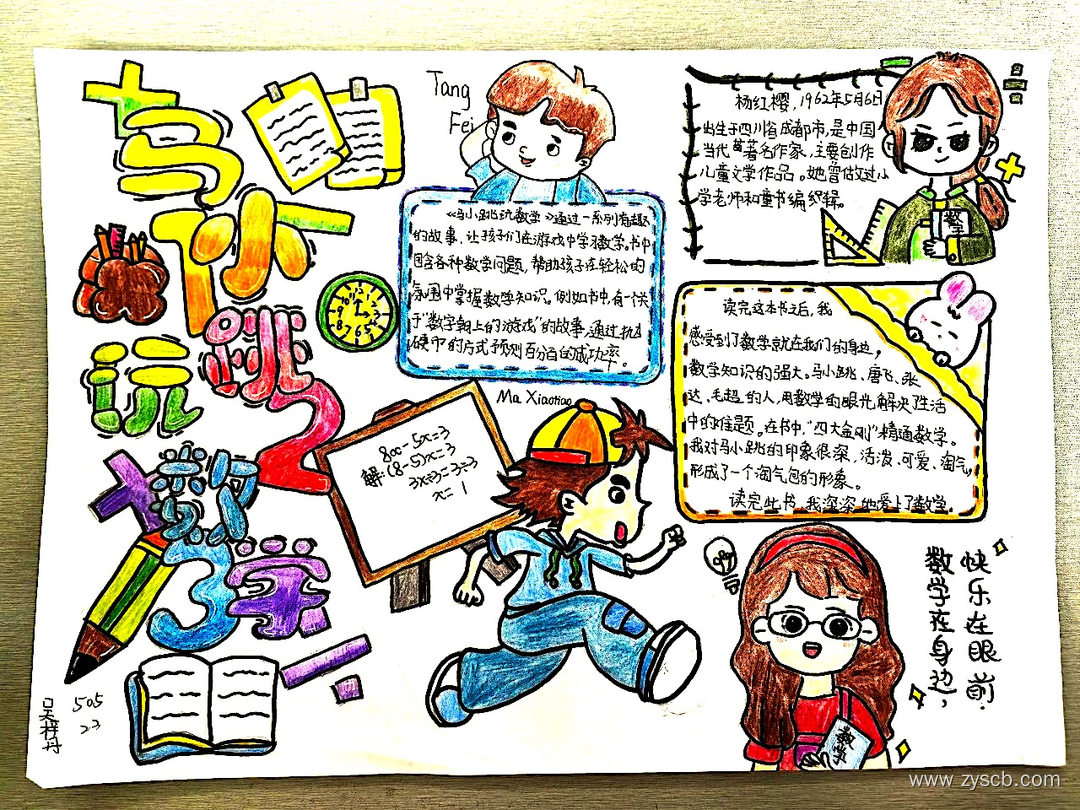 马小跳
玩
数学
2
3
Tang
Fei
杨红樱，1962年5月6日
出生于四川省成都市，是中国
当代著名作家，主要创作
儿童文学作品。她曾做过小
学老师和童书编辑。
《马小跳玩数学》通过一系列有趣
的故事，让孩子们在游戏中学习数学。书中
包含各种数学问题，帮助孩子在轻松的
氛围中掌握数学知识。例如书中，有一个关
于"数字朝上的游戏"的故事，通过抛
硬币的方式预测百分百的成功率。
Ma Xiaotiao
800-5x=3
解:(8-5)x=3
3x÷3=3÷3
x=1
读完这本书之后，我
感受到了数学就在我们的身边，
数学知识的强大。马小跳、唐飞、张
达、毛超的人，用数学的眼光，解决了生活
中的难题。在书中，"四大金刚"精通数学。
我对马小跳的印象很深，活泼、可爱、淘气
形成了一个淘气包的形象。
读完此书，我深深地爱上了数学。
数学
数学在身边，
快乐在眼前.
505
23
吴梓丹
www.zyscb.com